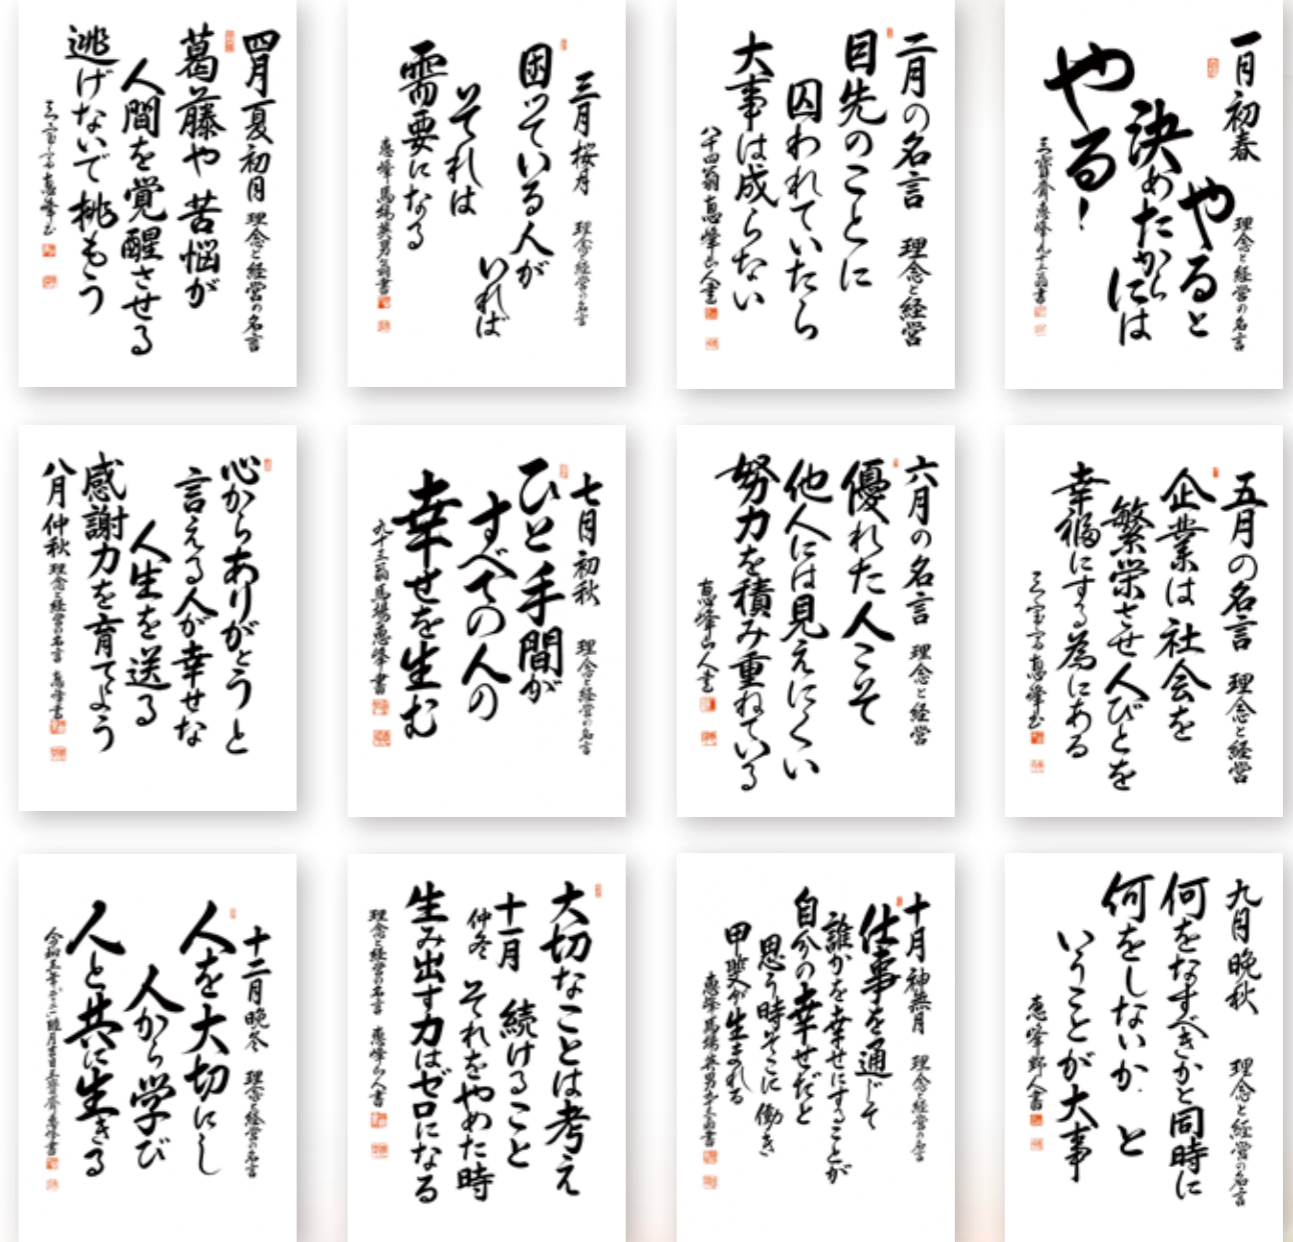 一月初春
理念と経営の名言
やると
決めたからには
やる!
三寶齋恵峰九十三翁書
二月の名言 理念と経営
目先のことに
囚われていたら
大事は成らない
八十四翁恵峰山人書
三月桜月 理念と経営の名言
困っている人が
いれば
それは
需要になる
恵峰馬場英男翁書
四月夏初月 理念と経営の名言
葛藤や苦悩が
人間を覚醒させる
逃げないで挑もう
五月の名言 理念と経営
企業は社会を
繁栄させ人びとを
幸福にする為にある
六月の名言 理念と経営
優れた人こそ
他人には見えにくい
努力を積み重ねている
恵峰山人書
七月初秋 理念と経営の名言
ひと手間が
すべての人の
幸せを生む
九十三翁馬場恵峰書
心からありがとうと
言える人が幸せな
人生を送る
感謝力を育てよう
八月仲秋 理念と経営の名言 恵峰書
九月晩秋 理念と経営の名言
何をなすべきかと同時に
何をしないかと
いうことが大事
恵峰野人書
十月神無月 理念と経営の名言
仕事を通じて
誰かを幸せにすることが
自分の幸せだと
思う時そこに働き
甲斐が生まれる
大切なことは考え
続けること
十一月仲冬
それをやめた時
生み出す力はゼロになる
理念と経営の名言 恵峰山人書
十二月晩冬 理念と経営の名言
人を大切にし
人から学び
人と共に生きる